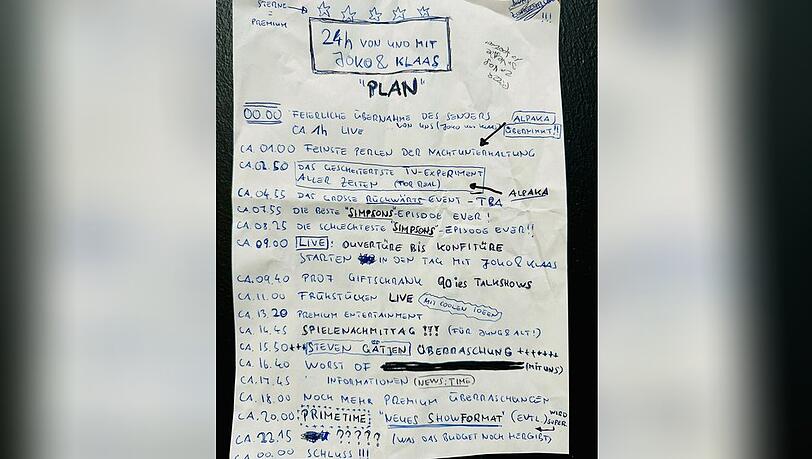 STERNE
=
PREMIUM
!!!
24h VON UND MIT
JOKO & KLAAS
"PLAN"
00.00 FEIERLICHE ÜBERNAHME DES SENDERS
VON UNS (JOKO UND KLAAS)
CA 1h LIVE
ALPAKA
ÜBERNIMMT!!
CA. 01.00 FEINSTE PERLEN DER NACHTUNTERHALTUNG
CA. 02.50 DAS GESCHEITERTSTE TV-EXPERIMENT
ALLER ZEITEN (FOR REAL)
ALPAKA
CA 04.55 DAS GROSSE RÜCKWÄRTS EVENT - TBA
CA. 07.55 DIE BESTE "SIMPSONS"-EPISODE EVER!
CA. 08.25 DIE SCHLECHTESTE "SIMPSONS"-EPISODE EVER!!
CA 09.00 LIVE: OUVERTÜRE BIS KONFITÜRE
STARTEN IN DEN TAG MIT JOKO & KLAAS
CA. 09.40 PRO7 GIFTSCHRANK 90ies TALKSHOWS
CA. 11.00 FRÜHSTÜCKEN LIVE (MIT COOLEN IDEEN)
CA. 13.20 PREMIUM ENTERTAINMENT
CA. 14.45 SPIELENACHMITTAG !!! (FÜR JUNG & ALT!)
CA. 15.50 +++ STEVEN GÄTJEN ÜBERRASCHUNG +++++++
CA. 16.40 WORST OF (MIT UNS)
CA. 17.45 INFORMATIONEN (NEWS:TIME)
CA. 18.00 NOCH MEHR PREMIUM ÜBERRASCHUNGEN
CA. 20.00 PRIMETIME "NEUES SHOWFORMAT" (EVTL.) WIRD SUPER
CA. 22.15 ????? (WAS DAS BUDGET NOCH HERGIBT)
CA. 00.00 SCHLUSS !!!